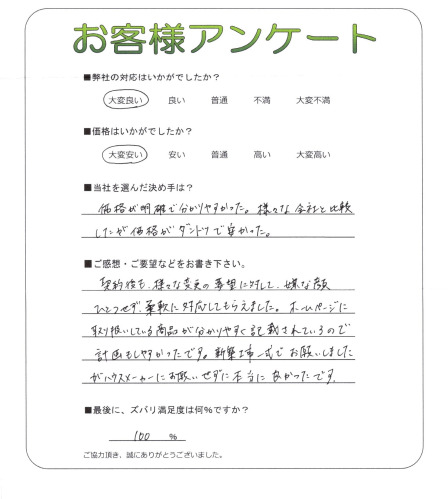 お客様アンケート
■弊社の対応はいかがでしたか?
大変良い 良い 普通 不満 大変不満
■価格はいかがでしたか?
大変安い 安い 普通 高い 大変高い
■当社を選んだ決め手は?
価格が明確で分かりやすかった。様々な会社と比較
したが価格がダントツで安かった。
■ご感想・ご要望などをお書き下さい。
契約後も、様々な変更の要望に対して、嫌な顔
ひとつせず、柔軟に対応してもらえました。ホームページに
取り扱いしている商品が分かりやすく記載されているので
計画もしやすかったです。新築工事一式でお願いしました
がハウスメーカーにお願いせずに本当に良かったです。
■最後に、ズバリ満足度は何%ですか?
100 %
ご協力頂き、誠にありがとうございました。